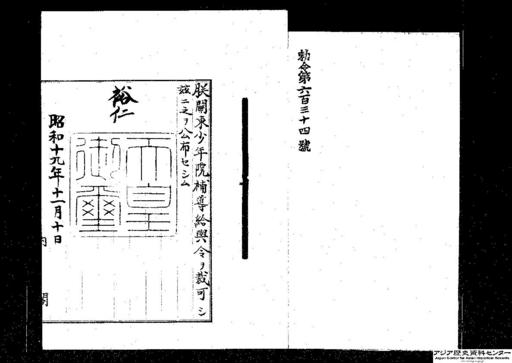 勅令第六百三十四號
朕關東少年院補導給與令ヲ裁可シ
茲ニ之ヲ公布セシム
裕仁
天皇
御璽
昭和十九年十一月十日
内
閣
アジア歴史資料センター
Japan Center for Asian Historical Records